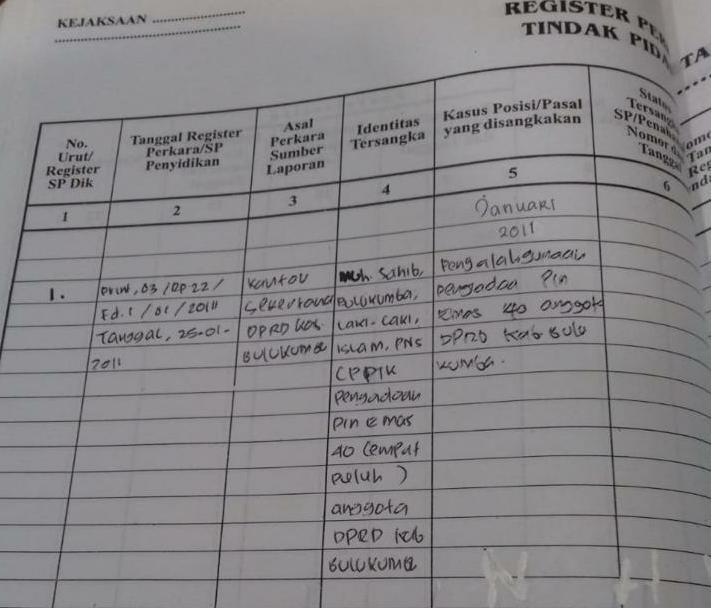 KEJAKSAAN
REGISTER PER
TINDAK PIDA
TA
No. Urut/ Register SP Dik
Tanggal Register Perkara/SP Penyidikan
Asal Perkara Sumber Laporan
Identitas Tersangka
Kasus Posisi/Pasal yang disangkakan
Status Tersangka SP/Penahan Nomor dan Tanggal
1 2 3 4 5 6
Januari
2011
1.
Print, 03 / RP 22 /
Fd. 1 / 01 / 2011
Tanggal, 25-01-
2011
Kantor
Sekertariat
DPRD Kab.
BULUKUMBA
Muh. Sahib,
BULUKUMBA,
Laki-Laki,
Islam, PNS
(PPTK
Pengadaan
Pin Emas
40 (empat
puluh )
anggota
DPRD Kab
BULUKUMBA
Pengalahgunaan
pengadaan Pin
Emas 40 anggota
DPRD Kab Bulu
kumba.